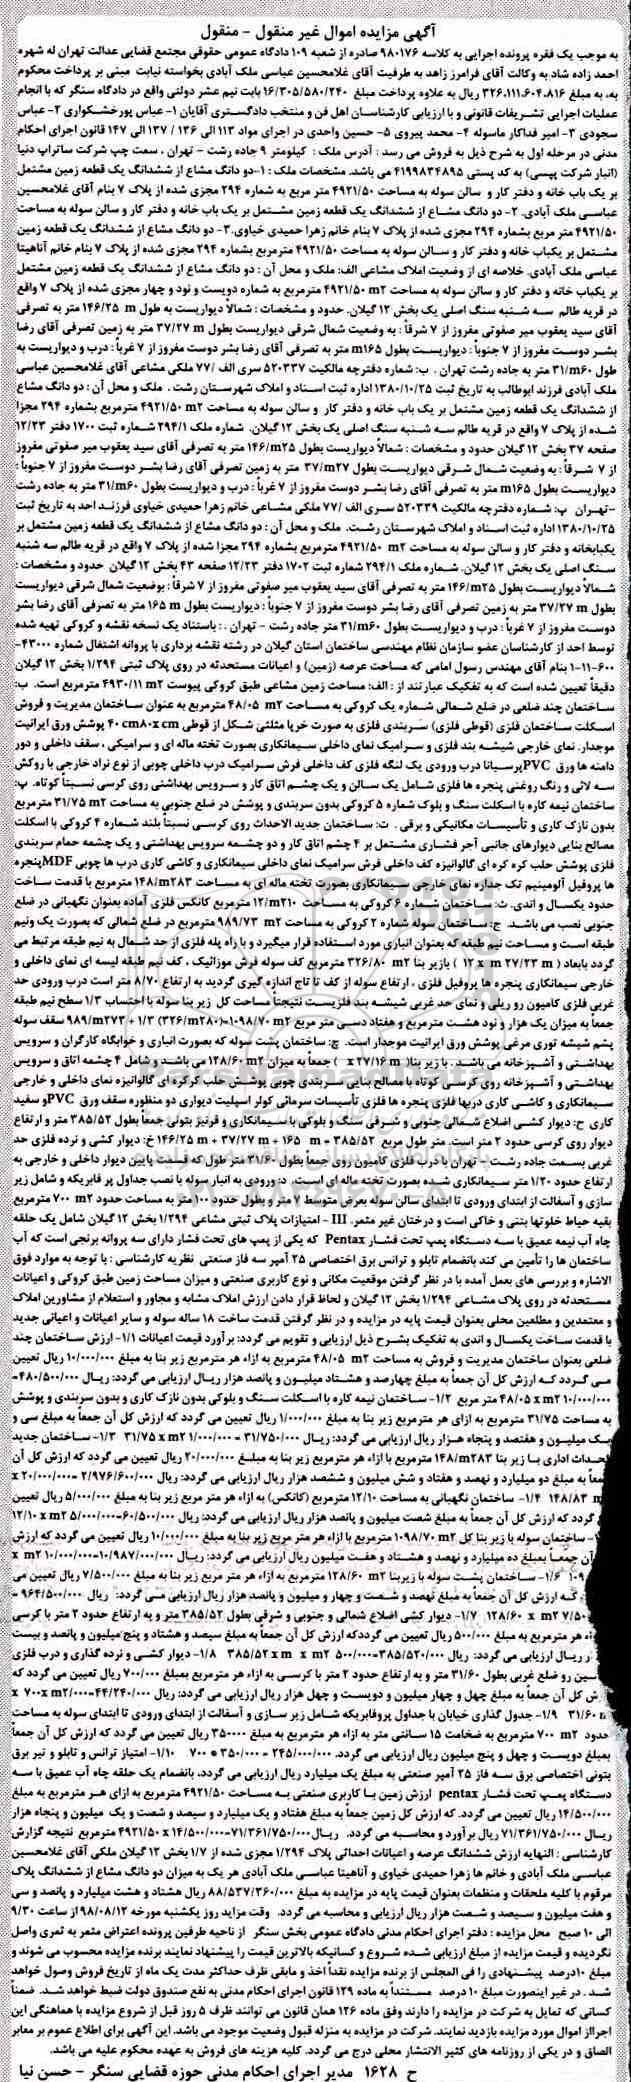 آگهی مزایده اموال غیر منقول - منقول
به موجب یک فقره پرونده اجرایی به کلاسه ۹۸۰۱۷۶ صادره از شعبه ۱۰۹ دادگاه عمومی حقوقی مجتمع قضایی عدالت تهران له شهره
احمد زاده شاد به وکالت آقای فرامرز زاهد به طرفیت آقای غلامحسین عباسی ملک آبادی بخواسته نیابت مبنی بر پرداخت محکوم
به، به مبلغ ۳۲۶،۱۱۱،۶۰۴،۸۱۶ ریال به علاوه پرداخت مبلغ ۱۶/۳۰۵/۵۸۰/۲۴۰ بابت نیم عشر دولتی واقع در دادگاه سنگر که با انجام
عملیات اجرایی تشریفات قانونی و با ارزیابی کارشناسان اهل فن و منتخب دادگستری آقایان ۱- عباس پورخشکواری ۲- عباس
سجودی ۳- امیر فداکار ماسوله ۴- محمد پیروی ۵- حسین واحدی در اجرای مواد ۱۱۳ الی ۱۲۶ / ۱۳۷ الی ۱۴۷ قانون اجرای احکام
مدنی در مرحله اول به شرح ذیل به فروش می رسد : آدرس ملک : کیلومتر ۹ جاده رشت - تهران ، سمت چپ شرکت ساتراپ دنیا
(انبار شرکت پپسی) به کد پستی ۴۱۹۹۸۳۴۸۹۵ می باشد. مشخصات ملک : ۱-دو دانگ مشاع از ششدانگ یک قطعه زمین مشتمل
بر یک باب خانه و دفتر کار و سالن سوله به مساحت ۴۹۲۱/۵۰ متر مربع به شماره ۲۹۴ مجزی شده از پلاک ۷ بنام آقای غلامحسین
عباسی ملک آبادی. ۲- دو دانگ مشاع از ششدانگ یک قطعه زمین مشتمل بر یک باب خانه و دفتر کار و سالن سوله به مساحت
۴۹۲۱/۵۰ متر مربع بشماره ۲۹۴ مجزی شده از پلاک ۷ بنام خانم زهرا حمیدی خیاوی.۳- دو دانگ مشاع از ششدانگ یک قطعه زمین
مشتمل بر یکباب خانه و دفتر کار و سالن سوله به مساحت ۴۹۲۱/۵۰ مترمربع بشماره ۲۹۴ مجزی شده از پلاک ۷ بنام خانم آناهیتا
عباسی ملک آبادی. خلاصه ای از وضعیت املاک مشاعی الف: ملک و محل آن : دو دانگ مشاع از ششدانگ یک قطعه زمین مشتمل
بر یکباب خانه و دفتر کار و سالن سوله به مساحت ۴۹۲۱/۵۰ m۲ مترمربع به شماره دویست و نود و چهار مجزی شده از پلاک ۷ واقع
در قریه طالم سه شنبه سنگ اصلی یک بخش ۱۲ گیلان. حدود و مشخصات : شمالاً دیواریست به طول m ۱۴۶/۲۵ متر به تصرفی
آقای سید یعقوب میر صفوتی مفروز از ۷ شرقاً : به وضعیت شمال شرقی دیواریست بطول m ۳۷/۲۷ متر به زمین تصرفی آقای رضا
بشر دوست مفروز از ۷ جنوباً : دیواریست بطول m۱۶۵ متر به تصرفی آقای رضا بشر دوست مفروز از ۷ غرباً : درب و دیواریست به
طول ۳۱/m۶۰ متر به جاده رشت تهران . ب: شماره دفترچه مالکیت ۵۲۰۳۳۷ سری الف /۷۷ ملکی مشاعی آقای غلامحسین عباسی
ملک آبادی فرزند ابوطالب به تاریخ ثبت ۱۳۸۰/۱۰/۲۵ اداره ثبت اسناد و املاک شهرستان رشت . ملک و محل آن : دو دانگ مشاع
از ششدانگ یک قطعه زمین مشتمل بر یک باب خانه و دفتر کار و سالن سوله به مساحت ۴۹۲۱/۵۰ m۲ مترمربع بشماره ۲۹۴ مجزا
شده از پلاک ۷ واقع در قریه طالم سه شنبه سنگ اصلی یک بخش ۱۲ گیلان. شماره ملک ۲۹۴/۱ شماره ثبت ۱۷۰۰ دفتر ۱۲/۲۳
صفحه ۳۷ بخش ۱۲ گیلان حدود و مشخصات : شمالاً دیواریست بطول ۱۴۶/m۲۵ متر به تصرفی آقای سید یعقوب میر صفوتی مفروز
از ۷ شرقاً : به وضعیت شمال شرقی دیواریست بطول ۳۷/m۲۷ متر به زمین تصرفی آقای رضا بشر دوست مفروز از ۷ جنوباً :
دیواریست بطول m۱۶۵ متر به تصرفی آقای رضا بشر دوست مفروز از ۷ غرباً : درب و دیواریست بطول ۳۱/m۶۰ متر به جاده رشت
-تهران پ: شماره دفترچه مالکیت ۵۲۰۳۳۹ سری الف /۷۷ ملکی مشاعی خانم زهرا حمیدی خیاوی فرزند احد به تاریخ ثبت
۱۳۸۰/۱۰/۲۵ اداره ثبت اسناد و املاک شهرستان رشت. ملک و محل آن : دو دانگ مشاع از ششدانگ یک قطعه زمین مشتمل بر
یکبابخانه و دفتر کار و سالن سوله به مساحت m۲ ۴۹۲۱/۵۰ مترمربع بشماره ۲۹۴ مجزا شده از پلاک ۷ واقع در قریه طالم سه شنبه
سنگ اصلی یک بخش ۱۲ گیلان. شماره ملک ۲۹۴/۱ شماره ثبت ۱۷۰۲ دفتر ۱۲/۲۳ صفحه ۴۳ بخش ۱۲ گیلان حدود و مشخصات :
شمالاً دیواریست بطول ۱۴۶/m۲۵ متر به تصرفی آقای سید یعقوب میر صفوتی مفروز از ۷ شرقاً : بوضعیت شمال شرقی دیواریست
بطول m ۳۷/۲۷ متر به زمین تصرفی آقای رضا بشر دوست مفروز از ۷ جنوباً : دیواریست بطول m ۱۶۵ متر به تصرفی آقای رضا بشر
دوست مفروز از ۷ غرباً : درب و دیواریست بطول ۳۱/m۶۰ متر جاده رشت - تهران . : باستناد یک نسخه نقشه و کروکی تهیه شده
توسط احد از کارشناسان عضو سازمان نظام مهندسی ساختمان استان گیلان در رشته نقشه برداری با پروانه اشتغال شماره ۴۳۰۰۰-
۱-۱۱-۶۰۰ بنام آقای مهندس رسول امامی که مساحت عرصه (زمین) و اعیانات مستحدثه در روی پلاک ثبتی ۱/۲۹۴ بخش ۱۲ گیلان
دقیقاً تعیین شده است که به تفکیک عبارتند از : الف: مساحت زمین مشاعی طبق کروکی پیوست m۲ ۴۹۳۰/۱۱ مترمربع است. ب:
ساختمان چند ضلعی در ضلع شمالی شماره یک کروکی به مساحت m۲ ۴۸/۰۵ مترمربع به عنوان ساختمان مدیریت و فروش
اسکلت ساختمان فلزی (قوطی فلزی) سربندی فلزی به صورت خرپا مثلثی شکل از قوطی cm ۴۰ cm۸۰x پوشش ورق ایرانیت
موجدار. نمای خارجی شیشه بند فلزی و سرامیک نمای داخلی سیمانکاری بصورت تخته ماله ای و سرامیکی ، سقف داخلی و دور
دامنه ها ورق PVCپرسیانا درب ورودی یک لنگه فلزی کف داخلی فرش سرامیک درب داخلی چوبی از نوع نراد خارجی با روکش
سه لائی و رنگ روغنی پنجره ها فلزی شامل یک سالن و یک چشم اتاق کار و سرویس بهداشتی روی کرسی نسبتاً کوتاه. پ:
ساختمان نیمه کاره با اسکلت سنگ و بلوک شماره ۵ کروکی بدون سربندی و پوشش در ضلع جنوبی به مساحت m۲ ۳۱/۷۵ مترمربع
بدون نازک کاری و تأسیسات مکانیکی و برقی . ت: ساختمان جدید الاحداث روی کرسی نسبتاً بلند شماره ۴ کروکی با اسکلت
مصالح بنایی دیوارهای جانبی آجر فشاری مشتمل بر ۴ چشم اتاق کار و دو چشمه سرویس بهداشتی و یک چشمه حمام سربندی
فلزی پوشش حلب کره کره ای گالوانیزه کف داخلی فرش سرامیک نمای داخلی سیمانکاری و کاشی کاری درب ها چوبی MDFپنجره
ها پروفیل آلومینیم تک جداره نمای خارجی سیمانکاری بصورت تخته ماله ای به مساحت ۱۴۸/m۲۸۳ مترمربع با قدمت ساخت
حدود یکسال و اندی. ث: ساختمان شماره ۶ کروکی به مساحت ۱۲/m۲۱۰ مترمربع کانکس فلزی آماده بعنوان نگهبانی در ضلع
جنوبی نصب می باشد. ج: ساختمان سوله شماره ۲ کروکی به مساحت m۲ ۹۸۹/۷۳ مترمربع در ضلع شمالی که بصورت یک ونیم
طبقه است و مساحت نیم طبقه که بعنوان انباری مورد استفاده قرار میگیرد و با راه پله فلزی از حد شمال به نیم طبقه مرتبط می
گردد بابعاد ( m ۲۷/۲۳ x m ۱۲ ) بازیر بنا m۲ ۳۲۶/۸۰ مترمربع کف سوله فرش موزائیک ، کف نیم طبقه لیسه ای نمای داخلی و
خارجی سیمانکاری پنجره ها پروفیل فلزی ، ارتفاع سوله از کف تا تاج اندازه گیری گردید به ارتفاع ۸/۷۰ متر است درب ورودی حد
غربی فلزی کامیون رو ریلی و نمای حد غربی شیشه بند فلزیست نتیجتاً مساحت کل زیر بنا سوله با احتساب ۱/۳ سطح نیم طبقه
جمعاً به میزان یک هزار و نود هشت مترمربع و هفتاد دسی متر مربع m۲ ۱۰۹۸/۷۰=(۳۲۶/m۲۸۰) ۱/۳ + ۹۸۹/m۲۷۳ سقف سوله
پشم شیشه توری مرغی پوشش ورق ایرانیت موجدار است. چ: ساختمان پشت سوله که بصورت انباری و خوابگاه کارگران و سرویس
بهداشتی و آشپزخانه می باشد. با زیر بنا( m ۲۷/۱۶ x ) جمعاً به میزان m۲ ۱۲۸/۶۰ می باشد و شامل ۴ چشمه اتاق و سرویس
بهداشتی و آشپزخانه روی کرسی کوتاه با مصالح بنایی سربندی چوبی پوشش حلب کرکره ای گالوانیزه نمای داخلی و خارجی
سیمانکاری و کاشی کاری دربها فلزی پنجره ها فلزی تأسیسات سرمائی کولر اسپلیت دیواری دو منظوره سقف ورق PVCو سفید
کاری ح: دیوار کشی اضلاع شمالی جنوبی و شرقی سنگ و بلوکی با سیمانکاری و قرنیز بتونی جمعاً بطول ۳۸۵/۵۲ متر و ارتفاع
دیوار روی کرسی حدود ۲ متر است. متر طول مربع ۳۸۵/۵۲ = m ۱۶۵ + m ۳۷/۲۷ + m ۱۴۶/۲۵ خ: دیوار کشی و نرده فلزی حد
غربی بسمت جاده رشت - تهران با درب فلزی کامیون روی جمعاً بطول ۳۱/۶۰ متر طول که قسمت پایین دیوار داخلی و خارجی به
ارتفاع حدود ۱/۲۰ متر سیمانکاری شده بصورت تخته ماله ای است. د: ورودی به انبار سوله با نصب جداول پر قابریکه و شامل زیر
سازی و آسفالت از ابتدای ورودی تا ابتدای سالن سوله بعرض متوسط ۷ متر و بطول حدود ۱۰۰ متر به مساحت حدود m۲ ۷۰۰ مترمربع
بقیه حیاط خلوتها بتنی و خاکی است و درختان غیر مثمر. III - امتیازات پلاک ثبتی مشاعی ۱/۲۹۴ بخش ۱۲ گیلان شامل یک حلقه
چاه آب نیمه عمیق با سه دستگاه پمپ تحت فشار Pentax که یکی از پمپ های تحت فشار دارای سه پروانه برنجی است که آب
ساختمان ها را تأمین می کند بانضمام تابلو و ترانس برق اختصاصی ۲۵ آمپر سه فاز صنعتی. نظریه کارشناسی : با توجه به موارد فوق
الاشاره و بررسی های بعمل آمده با در نظر گرفتن موقعیت مکانی و نوع کاربری صنعتی و میزان مساحت زمین طبق کروکی و اعیانات
مستحدثه در روی پلاک مشاعی ۱/۲۹۴ بخش ۱۲ گیلان و لحاظ قرار دادن ارزش املاک مشابه و مجاور و استعلام از مشاورین املاک
و معتمدین و مطلعین محلی بعنوان قیمت پایه در مزایده و در نظر گرفتن قدمت ساخت ۱۸ ساله سوله و سایر اعیانات و اعیانی جدید
با قدمت ساخت یکسال و اندی به تفکیک بشرح ذیل ارزیابی و تقویم می گردد: برآورد قیمت اعیانات ۱/۱- ارزش ساختمان چند
ضلعی بعنوان ساختمان مدیریت و فروش به مساحت m۲ ۴۸/۰۵ مترمربع به ازاء هر مترمربع زیر بنا به مبلغ ۱۰/۰۰۰/۰۰۰ ریال تعیین
می گردد که ارزش کل آن جمعاً به مبلغ چهارصد و هشتاد میلیون و پانصد هزار ریال ارزیابی می گردد: ریال ۴۸۰/۵۰۰/۰۰۰=
۱۰/۰۰۰/۰۰۰ m۲ x ۴۸/۰۵ متر مربع ۱/۲- ساختمان نیمه کاره با اسکلت سنگ و بلوکی بدون نازک کاری و بدون سربندی و پوشش
به مساحت ۳۱/۷۵ مترمربع به ازای هر مترمربع زیر بنا به مبلغ ۱/۰۰۰/۰۰۰ ریال تعیین می گردد که ارزش کل آن جمعاً به مبلغ سی و
یک میلیون و هفتصد و پنجاه هزار ریال ارزیابی می گردد: ریال ۳۱/۷۵۰/۰۰۰ = ۱/۰۰۰/۰۰۰ m۲ x ۳۱/۷۵ ۱/۳- ساختمان جدید
احداث اداری با زیر بنا ۱۴۸/m۲۸۳ مترمربع با ازاء هر مترمربع زیر بنا به مبلغ ۲۰/۰۰۰/۰۰۰ ریال تعیین می گردد که ارزش کل آن
جمعاً به مبلغ دو میلیارد و نهصد و هفتاد و شش میلیون و ششصد هزار ریال ارزیابی می گردد: ریال ۲/۹۷۶/۶۰۰/۰۰۰= ۲۰/۰۰۰/۰۰۰ x
۱۴۸/۸۳ ۱/۴- ساختمان نگهبانی به مساحت ۱۲/۱۰ مترمربع (کانکس) به ازاء هر متر مربع زیر بنا به مبلغ ۵/۰۰۰/۰۰۰ ریال تعیین
گردد که ارزش کل آن جمعاً به مبلغ شصت میلیون و پانصد هزار ریال ارزیابی می گردد: ریال ۶۰/۵۰۰/۰۰۰=۵/۰۰۰/۰۰۰ m۲ x ۱۲/۱۰
- ساختمان سوله با زیر بنا کل m۲ ۱۰۹۸/۷۰ مترمربع با ازاء هر متر مربع زیر بنا به مبلغ ۱۰/۰۰۰/۰۰۰ ریال تعیین می گردد که ارزش
آن جمعاً بمبلغ ده میلیارد و نهصد و هشتاد و هفت میلیون ریال ارزیابی می گردد: ریال ۱۰/۹۸۷/۰۰۰/۰۰۰=۱۰/۰۰۰/۰۰۰ m۲ x
۱۰۹ ۱/۶- ساختمان پشت سوله با زیربنا m۲ ۱۲۸/۶۰ مترمربع به ازاء هر متر مربع زیر بنا به مبلغ ۷/۵۰۰/۰۰۰ ریال تعیین می
که ارزش کل آن جمعاً به مبلغ نهصد و شصت و چهار میلیون و پانصد هزار ریال ارزیابی می گردد: ریال ۹۶۴/۵۰۰/۰۰۰ =
۷/۵۰ m۲ x ۱۲۸/۶۰ ۱/۷- دیوار کشی اضلاع شمالی و جنوبی و شرقی بطول ۳۸۵/۵۲ متر و به ارتفاع حدود ۲ متر با کرسی
ازاء هر مترمربع به مبلغ ۵۰۰/۰۰۰ ریال تعیین می گرددکه ارزش کل آن جمعاً به مبلغ سیصد و هشتاد و پنج میلیون و پانصد و بیست
ریال ارزیابی می گردد: ریال ۳۸۵/۵۲۰/۰۰۰=۵۰۰/۰۰۰ m۲ x m x ۳۸۵/۵۲ ۱/۸- دیوار کشی و نرده گذاری و درب فلزی
رو ضلع غربی بطول ۳۱/۶۰ متر و به ارتفاع حدود ۲ متر با کرسی به ازاء هر مترمربع بمبلغ ۷۰۰/۰۰۰ ریال تعیین می گردد که
کل آن جمعاً به مبلغ چهل و چهار میلیون و دویست و چهل هزار ریال ارزیابی می گردد: ریال ۴۴/۲۴۰/۰۰۰=۷۰۰/۰۰۰ m۲ x
۳۱/۶۰ ۱/۹- جدول گذاری خیابان با جداول پروفابریکه شامل زیر سازی و آسفالت از ابتدای ورودی تا ابتدای سوله به مساحت
حدود m۲ ۷۰۰ مترمربع به ضخامت ۱۵ سانتی متر به ازاء هر مترمربع به مبلغ ۳۵۰۰۰۰ ریال تعیین می گردد که ارزش کل آن جمعاً
بمبلغ دویست و چهل و پنج میلیون ریال ارزیابی می گردد. ۲۴۵/۰۰۰/۰۰۰ = ۳۵۰/۰۰۰ * ۷۰۰ ۱/۱۰- امتیاز ترانس و تابلو و تیر برق
بتونی اختصاصی برق سه فاز ۲۵ آمپر صنعتی به مبلغ یک میلیارد ریال ارزیابی می گردد، بانضمام یک حلقه چاه آب عمیق با سه
دستگاه پمپ تحت فشار pentax ارزش زمین با کاربری صنعتی به مساحت ۴۹۲۱/۵۰ مترمربع به ازای هر مترمربع به مبلغ
۱۴/۵۰۰/۰۰۰ ریال تعیین می گردد. که ارزش کل زمین جمعاً به مبلغ هفتاد و یک میلیارد و سیصد و شصت و یک میلیون و پنجاه هزار
ریال ۷۱/۳۶۱/۷۵۰/۰۰۰ ریال برآورد و محاسبه می گردد. ریال۷۱/۳۶۱/۷۵۰/۰۰۰=۱۴/۵۰۰/۰۰۰ x ۴۹۲۱/۵۰ مترمربع نتیجه گزارش
کارشناسی : النهایه ارزش ششدانگ عرصه و اعیانات احداثی پلاک ۱/۲۹۴ مجزی شده از ۱/۷ بخش ۱۲ گیلان ملکی آقای غلامحسین
عباسی ملک آبادی و خانم ها زهرا حمیدی خیاوی و آناهیتا عباسی ملک آبادی هر یک به میزان دو دانگ مشاع از ششدانگ پلاک
مرقوم با کلیه ملحقات و منظمات بعنوان قیمت پایه در مزایده به مبلغ ۸۸/۵۳۷/۳۶۰/۰۰۰ ریال هشتاد و هشت میلیارد و پانصد و سی
و هفت میلیون و سیصد و شصت هزار ریال ارزیابی و محاسبه می گردد. وقت مزاید روز یکشنبه مورخه ۹۸/۰۸/۱۲ از ساعت ۹/۳۰
الی ۱۰ صبح محل مزایده : دفتر اجرای احکام مدنی دادگاه عمومی بخش سنگر از ناحیه طرفین پرونده اعتراض مثمر به ثمری واصل
نگردیده و قیمت مزایده از مبلغ ارزیابی شده شروع و کسانیکه بالاترین قیمت را پیشنهاد نمایند برنده مزایده محسوب می شوند و
مبلغ ۱۰درصد پیشنهادی را فی المجلس از برنده مزایده نقداً اخذ و مابقی ظرف حداکثر مدت یک ماه از تاریخ فروش وصول خواهد
شد . در غیر اینصورت مبلغ ۱۰ درصد مستنداً به ماده ۱۲۹ قانون اجرای احکام مدنی به نفع صندوق دولت ضبط خواهد شد. ضمناً
کسانی که تمایل به شرکت در مزایده را دارند وفق ماده ۱۲۶ همان قانون می توانند ظرف ۵ روز قبل از شروع مزایده با هماهنگی این
اجرااز اموال مورد مزایده بازدید نمایند. شرکت در مزایده به منزله قبول وضعیت موجود می باشد. این آگهی برای اطلاع عموم بر معابر
الصاق و در یکی از روزنامه های کثیر الانتشار محلی درج می گردد. کلیه هزینه های فروش به عهده محکوم علیه می باشد.
ح ۱۶۲۸ مدیر اجرای احکام مدنی حوزه قضایی سنگر - حسن نیا